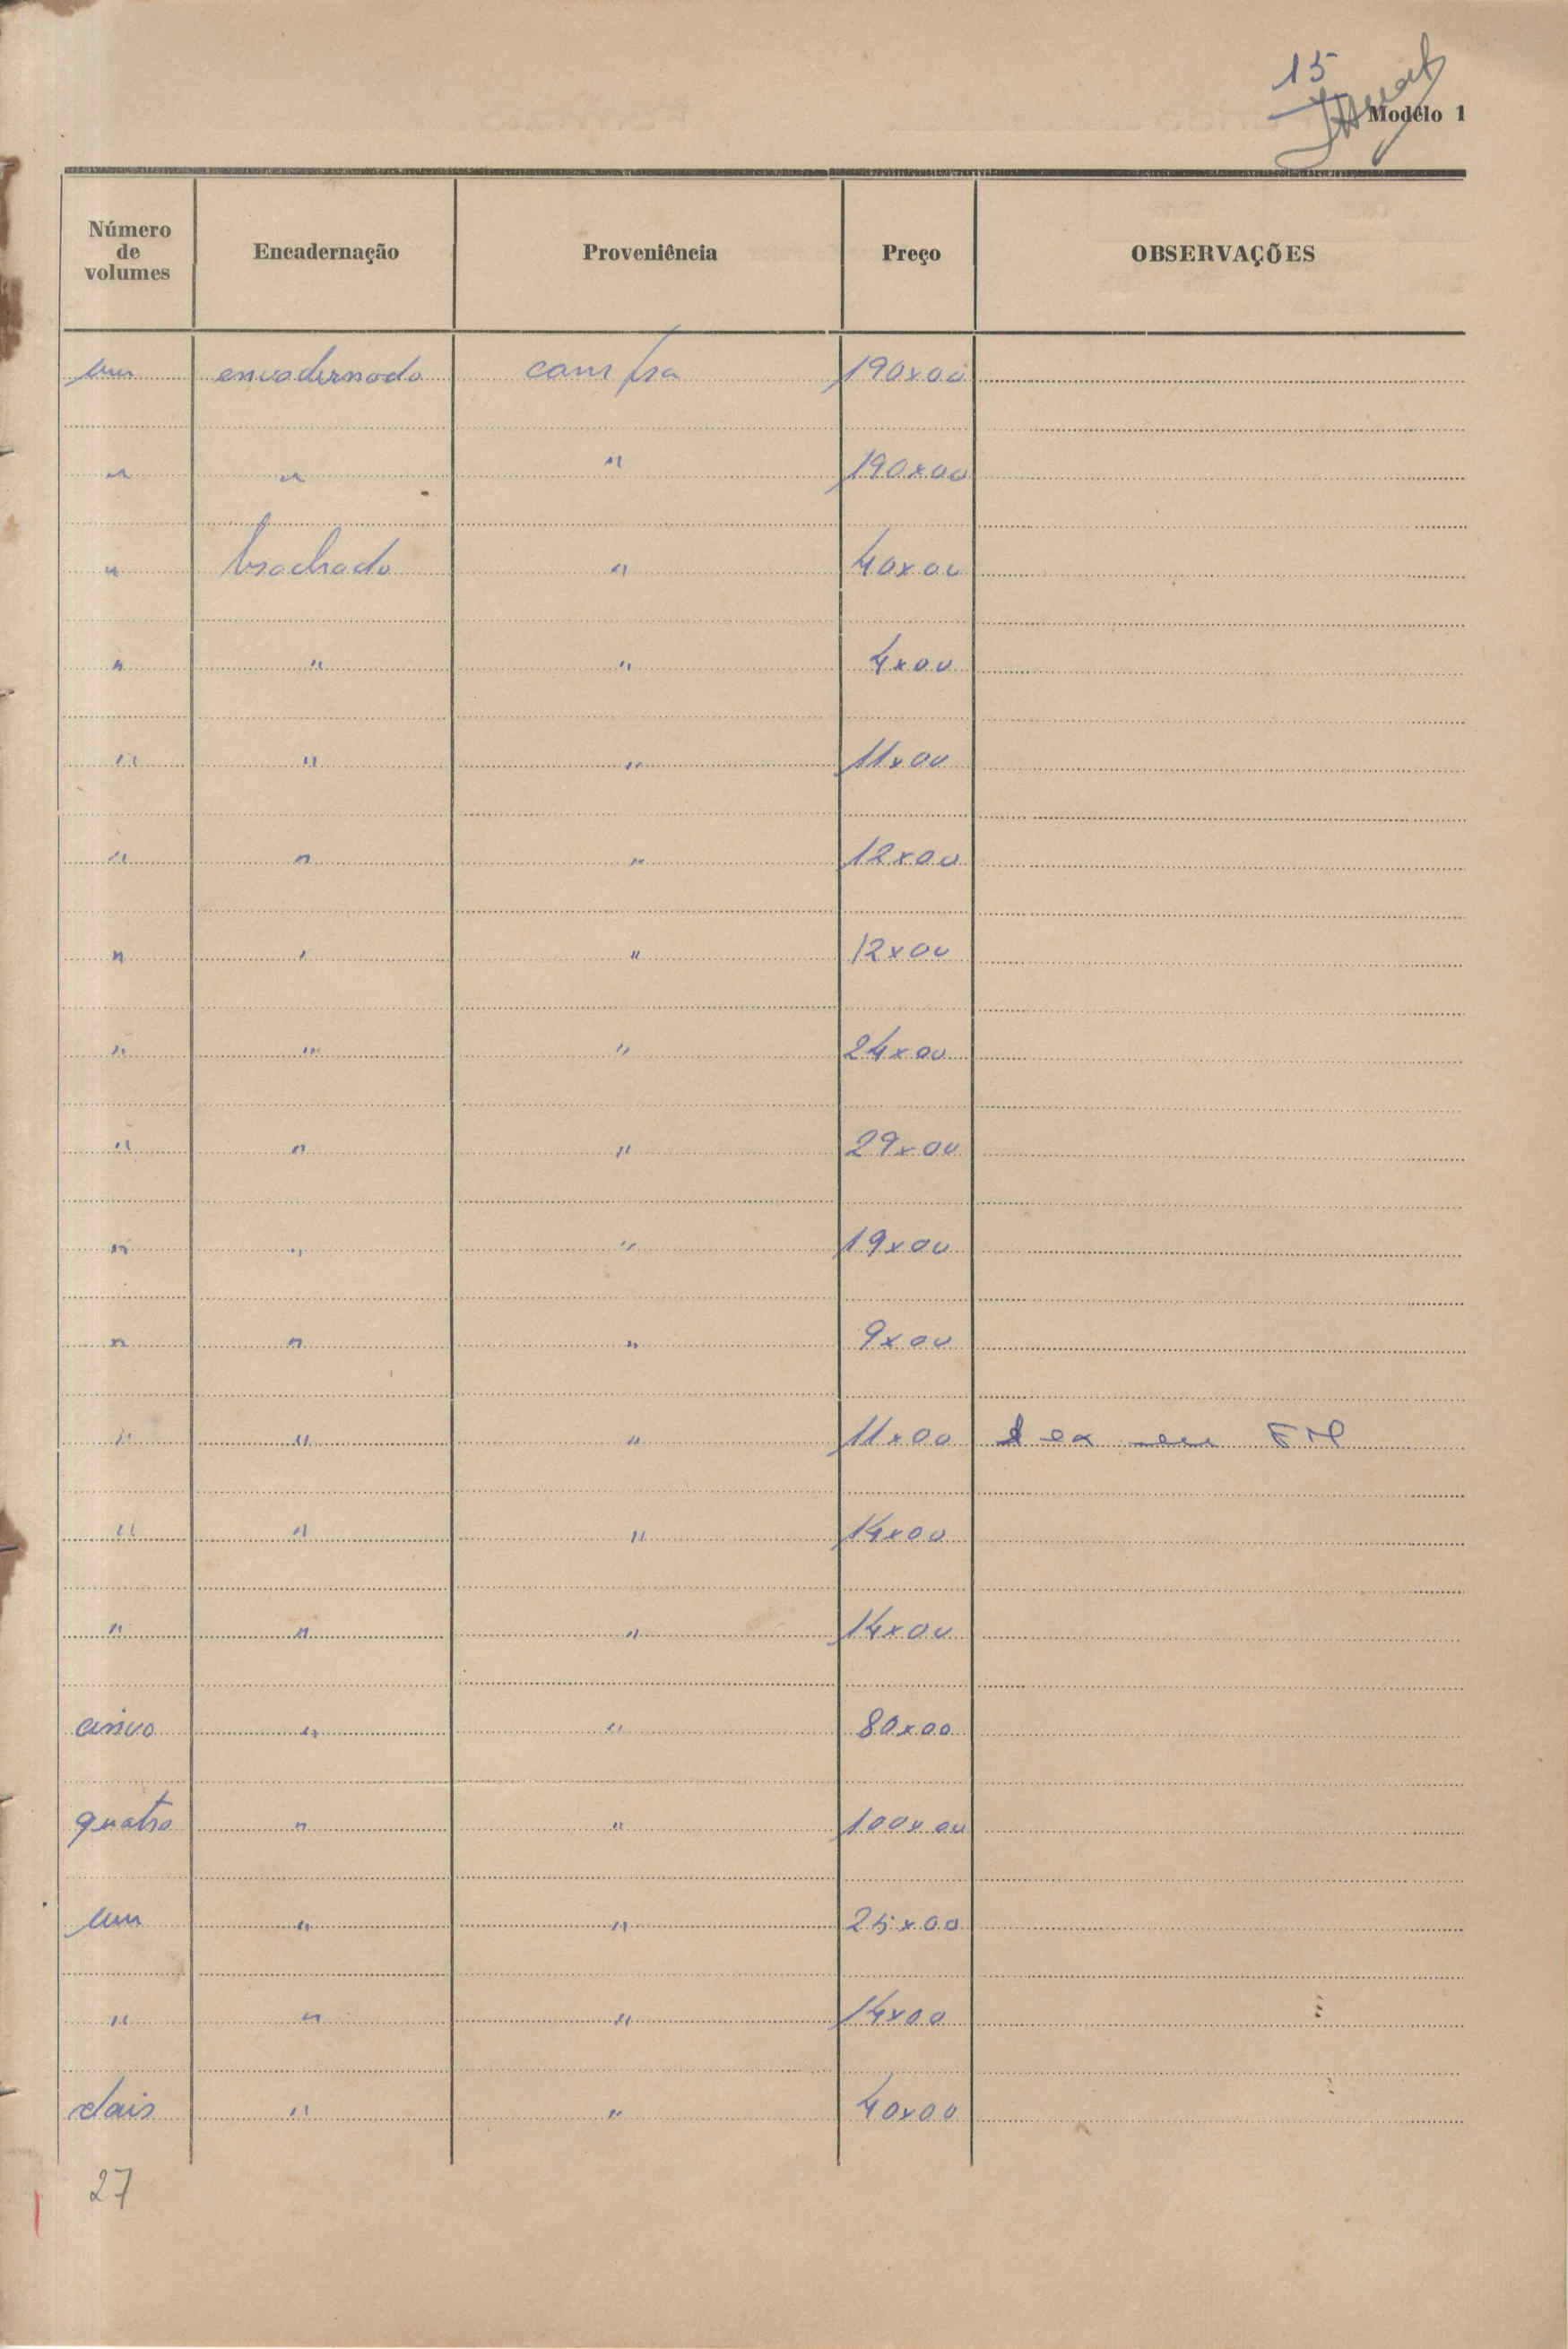 15
Modêlo 1
Número de volumes Encadernação Proveniência Preço OBSERVAÇÕES
um encadernado compra 190x00
" " " 190x00
" brochado " 40x00
" " " 4x00
" " " 11x00
" " " 12x00
" " " 12x00
" " " 24x00
" " " 29x00
" " " 19x00
" " " 9x00
" " " 11x00 ex em
" " " 14x00
" " " 14x00
cinco " " 80x00
quatro " " 100x00
um " " 25x00
" " " 14x00
dois " " 40x00
27